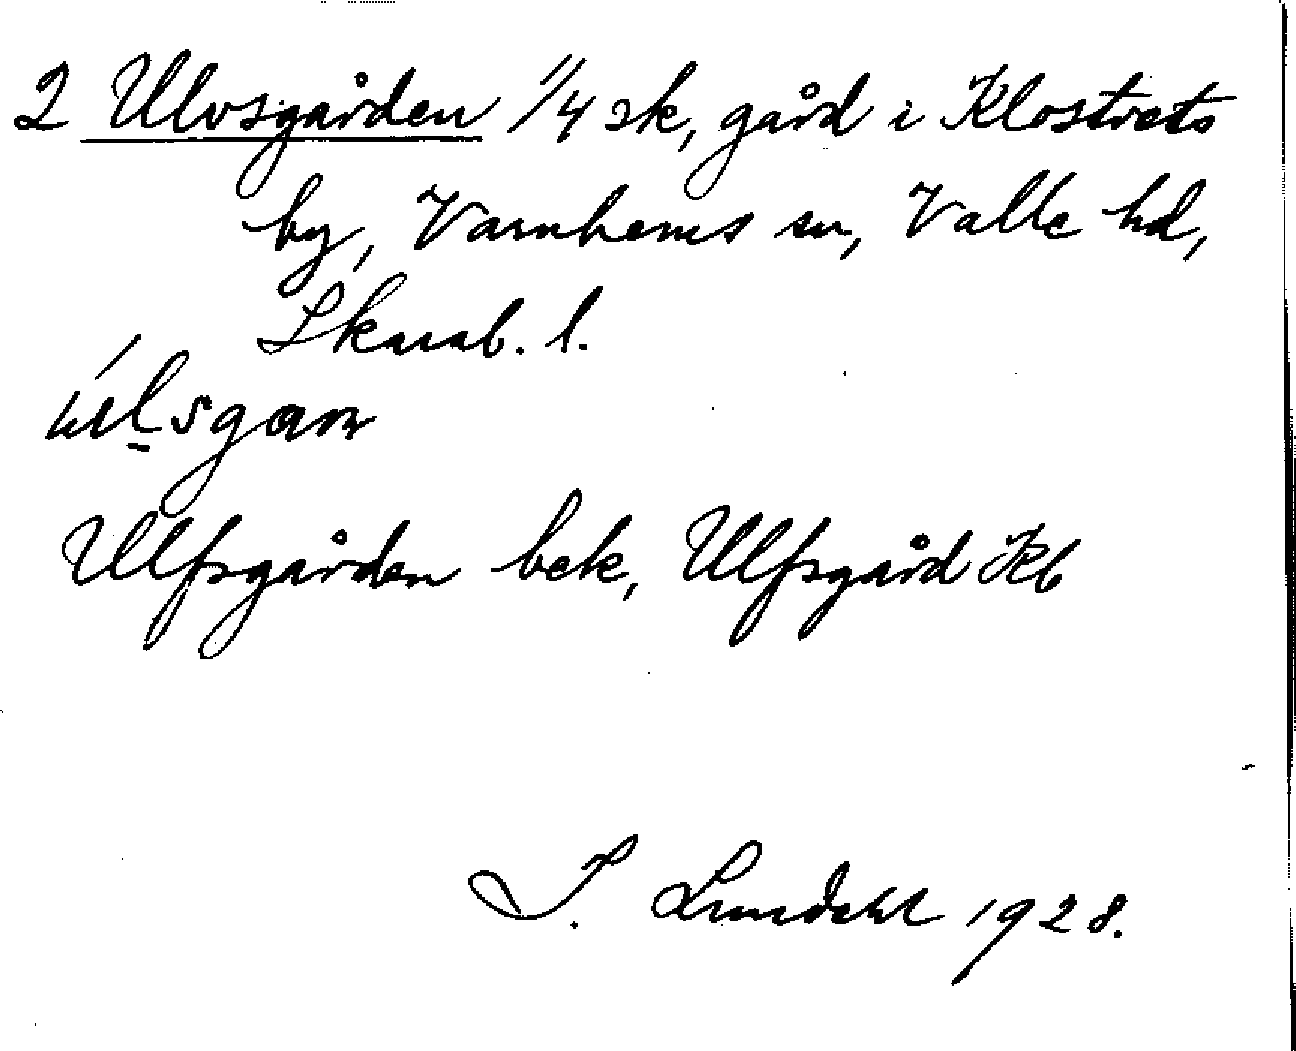 2 Ulvsgården 1/4 sk, gård i Klostrets
by, Varnhems sn, Valle hd,
Skarab. l.
Ulfsgården bek, Ulfsgård Kb
I. Lundahl 1928.